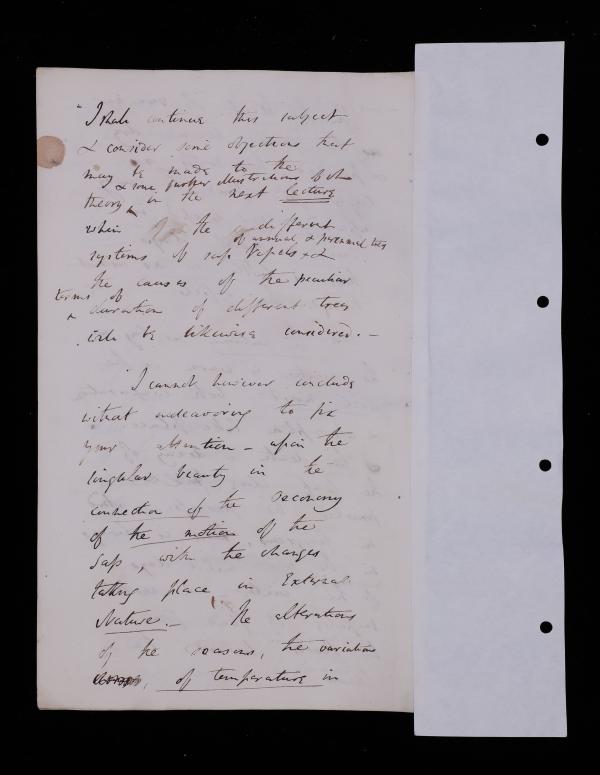 "I shall continue this subject
& consider some objections that
may be made to the
& some further illustrations of the
theory in the next lecture
when the different
of annual & perennial trees
systems of sap vessels &
the causes of the peculiar
terms of
duration of different trees
will be likewise considered. –
I cannot however conclude
without endeavoring to fix
your attention – upon the
singular beauty in the
connection of the oeconomy
of the motion of the
Sap, with the changes
taking place in External
Nature. – The alterations
of the seasons, the variations
of temperature in